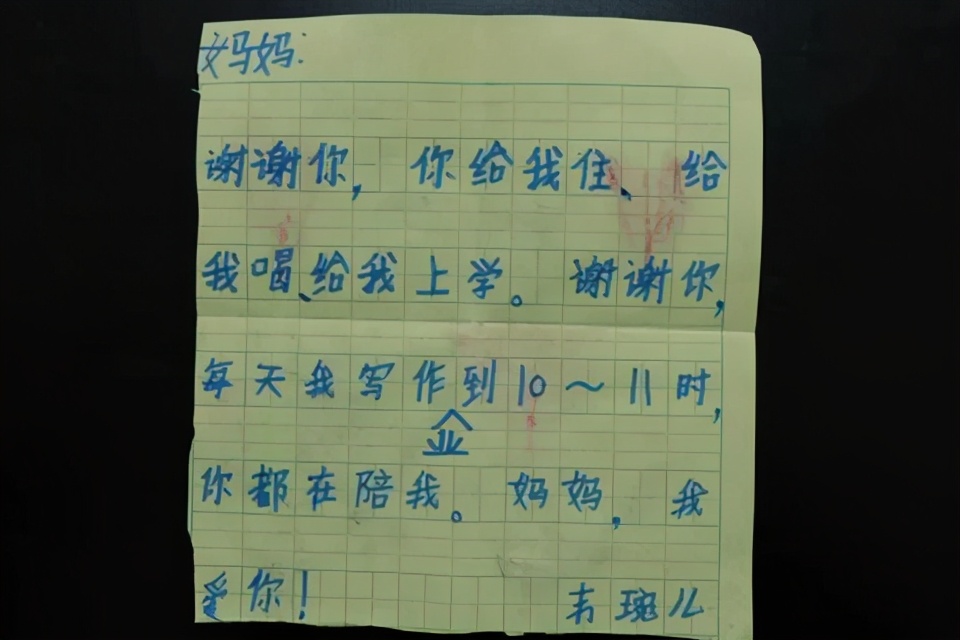 妈妈:
谢谢你, 你给我住、给
我喝、给我上学。谢谢你,
每天我写作业到10~11时,
你都在陪我。妈妈,我
爱你! 韦斑儿